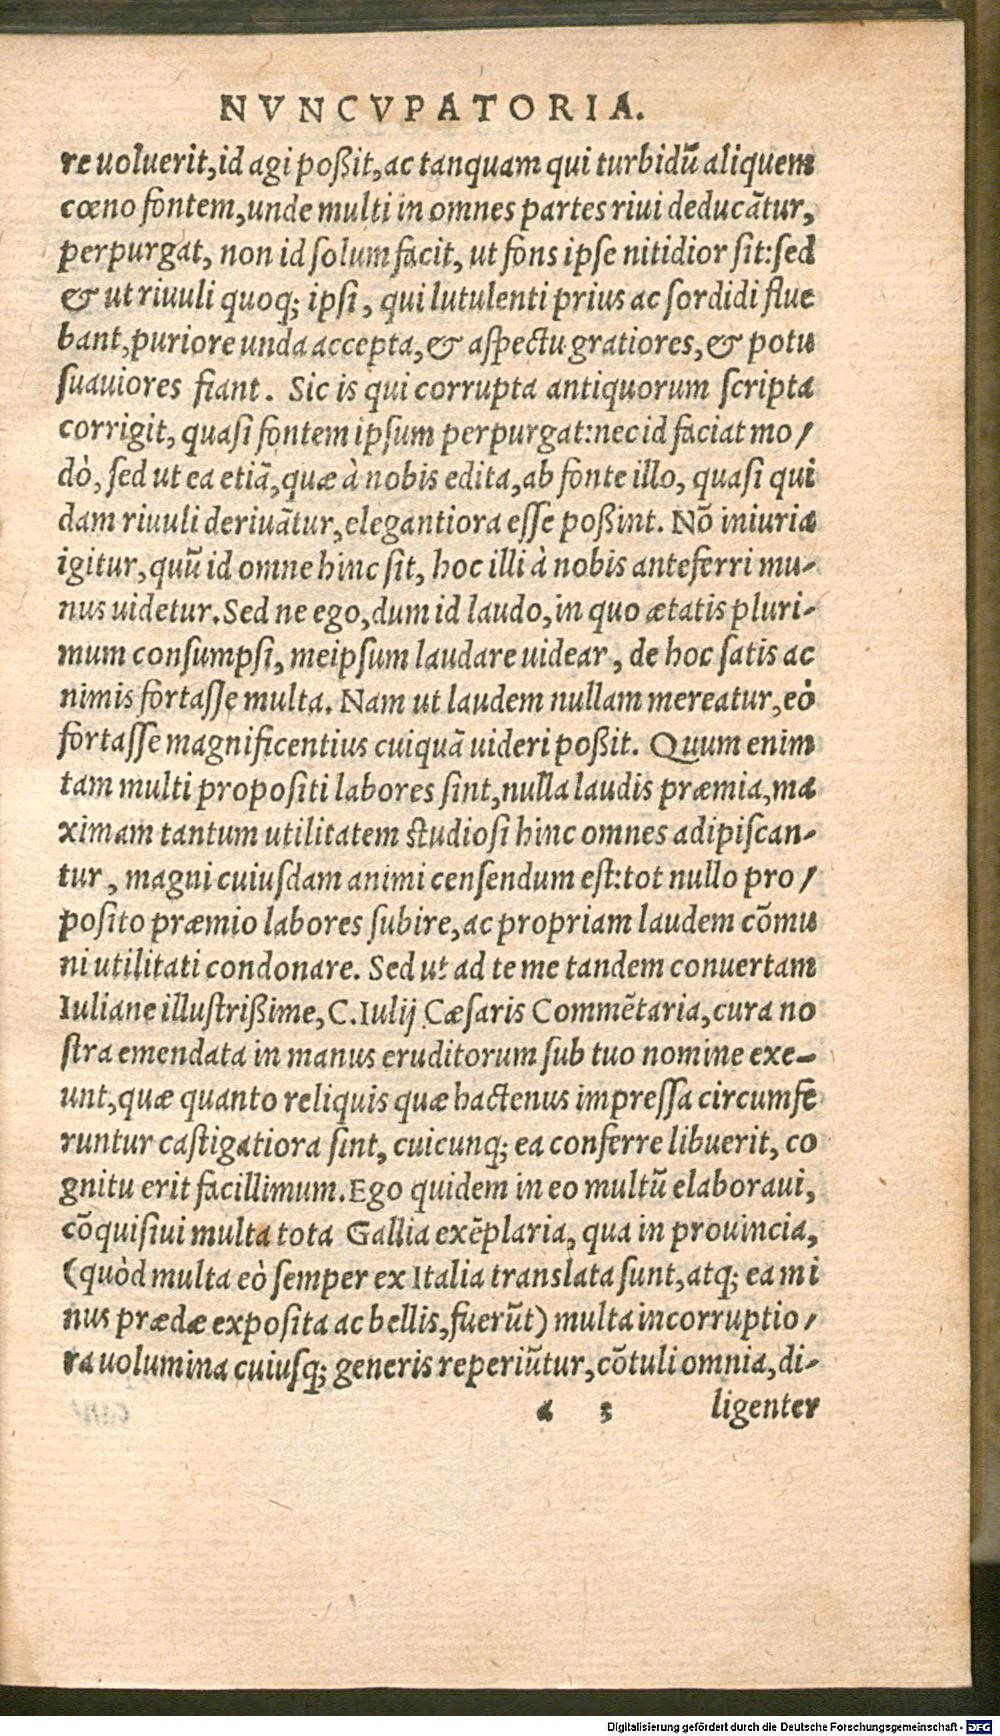 NVNCVPATORIA.
re uoluerit, id agi poßit, ac tanquam qui turbidū aliquem
cœno fontem, unde multi in omnes partes riui deducātur,
perpurgat, non id ſolum facit, ut fons ipſe nitidior ſit: ſed
& ut riuuli quoq; ipſi, qui lutulenti prius ac ſordidi flue
bant, puriore unda accepta, & aſpectu gratiores, & potu
ſuauiores fiant. Sic is qui corrupta antiquorum ſcripta
corrigit, quaſi fontem ipſum perpurgat: nec id faciat mo/
dò, ſed ut ea etiā, quæ à nobis edita, ab fonte illo, quaſi qui
dam riuuli deriuātur, elegantiora eſſe poßint. Nō iniuria
igitur, quū id omne hinc ſit, hoc illi à nobis anteferri mu-
nus uidetur. Sed ne ego, dum id laudo, in quo ætatis pluri-
mum conſumpſi, meipſum laudare uidear, de hoc ſatis ac
nimis fortaſſe multa. Nam ut laudem nullam mereatur, eò
fortaſſe magnificentius cuiquā uideri poßit. Quum enim
tam multi propoſiti labores ſint, nulla laudis præmia, ma
ximam tantum utilitatem ſtudioſi hinc omnes adipiſcan-
tur, magni cuiuſdam animi cenſendum eſt: tot nullo pro/
poſito præmio labores ſubire, ac propriam laudem cōmu
ni utilitati condonare. Sed ut ad te me tandem conuertam
Iuliane illuſtrißime, C. Iulij Cæſaris Commētaria, cura no
ſtra emendata in manus eruditorum ſub tuo nomine exe-
unt, quæ quanto reliquis quæ hactenus impreſſa circumfe
runtur caſtigatiora ſint, cuicunq; ea conferre libuerit, co
gnitu erit facillimum. Ego quidem in eo multū elaboraui,
cōquiſiui multa tota Gallia exēplaria, qua in prouincia,
(quòd multa eò ſemper ex Italia translata ſunt, atq; ea mi
nus prædæ expoſita ac bellis, fuerūt) multa incorruptio/
ra uolumina cuiuſq; generis reperiūtur, cōtuli omnia, di-
a 3 ligenter
Digitalisierung gefördert durch die Deutsche Forschungsgemeinschaft - DFG